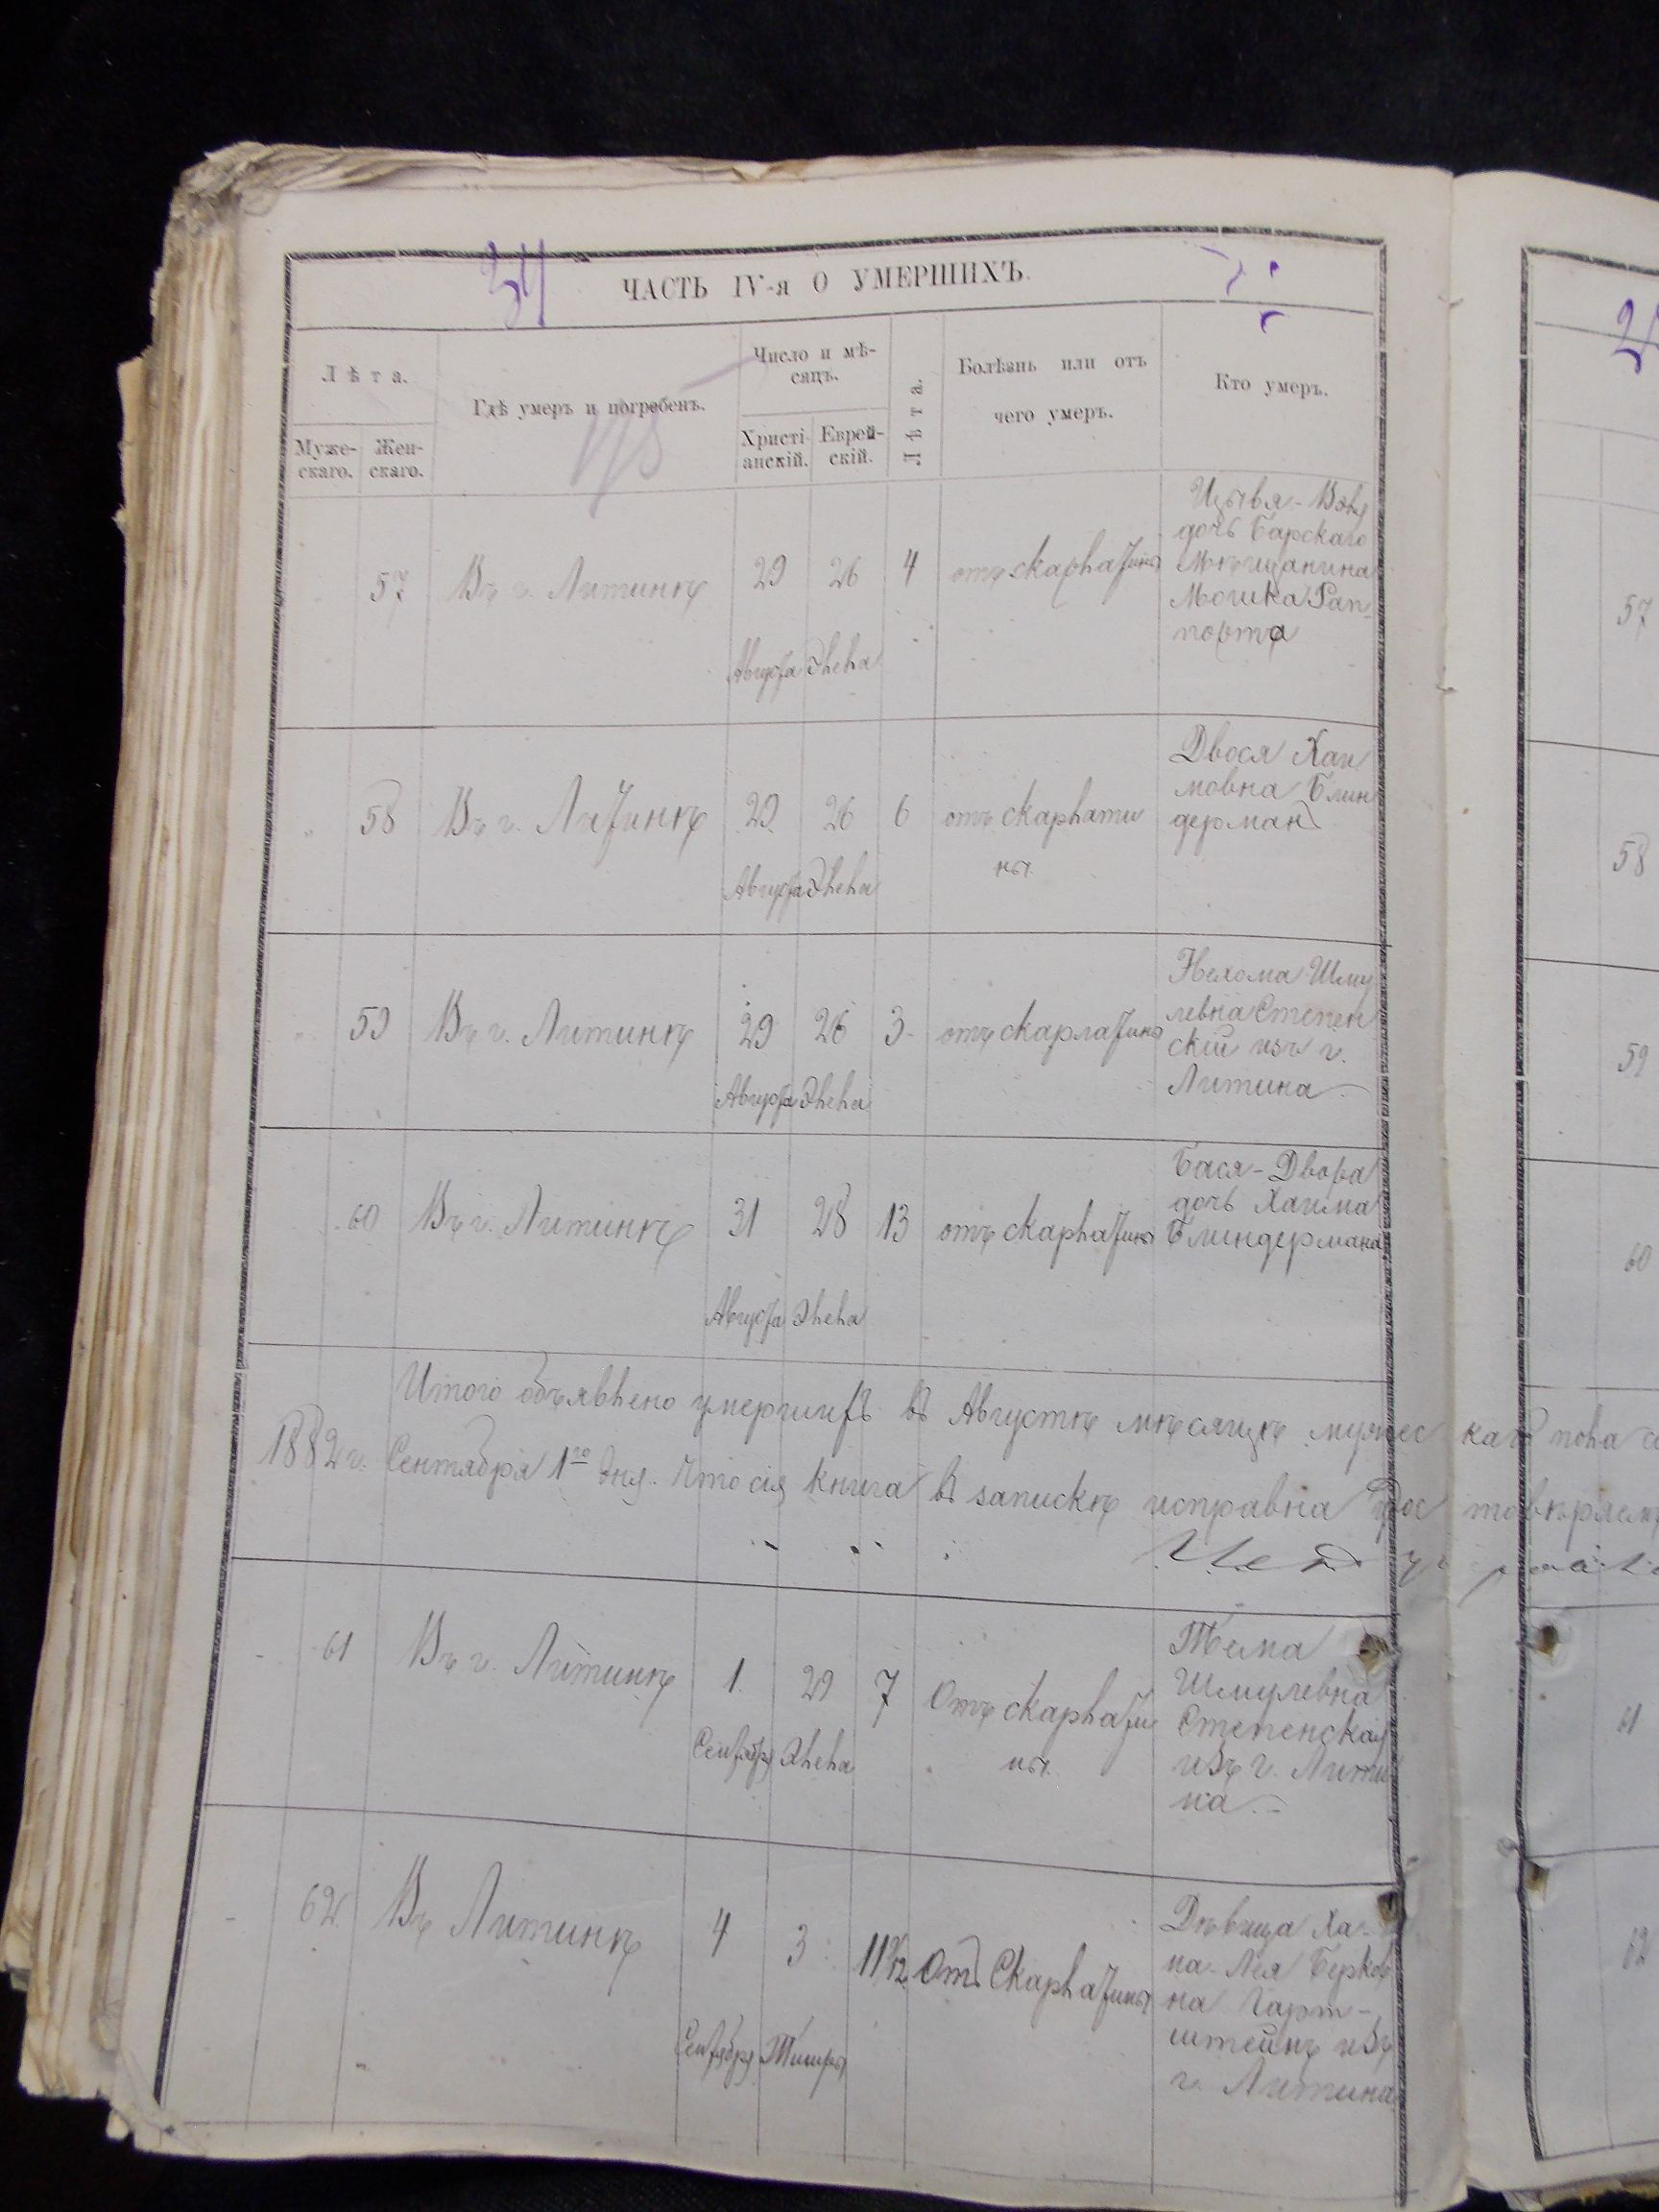 34
ЧАСТЬ IV-я О УМЕРШИХЪ.
Лѣта.
Муже-
скаго.
Жен-
скаго.
Гдѣ умеръ и погребенъ.
Число и мѣ-
сяцъ.
Христі-
анскій.
Еврей-
скій.
Лѣта.
Болѣзнь или отъ
чего умеръ.
Кто умеръ.
57
Въ г. Литинѣ
29
Августа
26
Элела
4
отъ скарлатины
дочь Барскаго
Мѣщанина
Мошка Рап-
порта
58
Въ г. Литинѣ
29
Августа
26
Элела
6
отъ скарлати
ны.
Двося Хаи
мовна Блин
дерман
59
Въ г. Литинѣ
29
Августа
26
Элела
3
отъ скарлатины
Нехома Шму
левна Степен
скій изъ г.
Литина
60
Въ г. Литинѣ
31
Августа
28
Элела
13
отъ скарлатины
Бася-Двора
дочь Хаима
Блиндермана
Итого объявлено умершихъ въ Августѣ мѣсяцѣ мужескаго пола
1882 г. Сентября 1го дня. Что сія книга въ запискѣ исправна
61
Въ г. Литинѣ
1.
Сентября
29
Элела
7
Отъ скарлати
ны.
Тема
Шмулевна
Степенская
изъ г. Лити
на.
62
Въ Литинѣ
4
Сентября
3
Тишры
Отъ Скарлатины
Дѣвица Ха-
на-Лея Берков
на Гарт-
штейнъ изъ
г. Литина
57
58
59
60
61
62